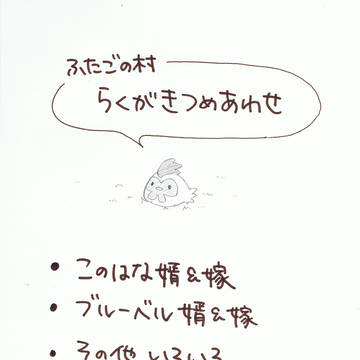 ふたごの村
らくがきつめあわせ
• このはな婿&嫁
• ブルーベル婿&嫁
• その他いろいろ